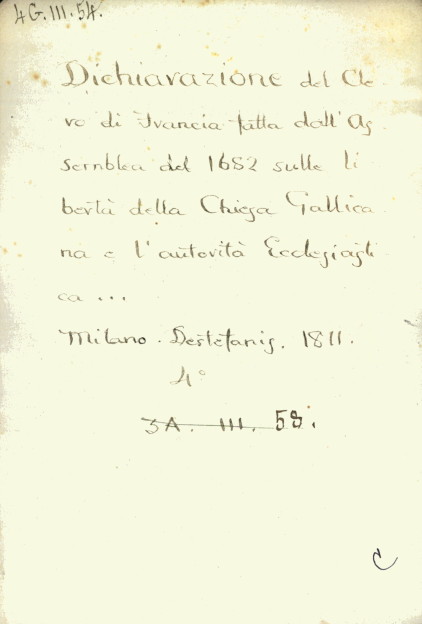 4G.III.54.
Dichiarazione del Cle-
ro di Francia fatta dall'As
semblea del 1682 sulle li
bertà della Chiesa Gallica
na e l'autorità Ecclesiasti
ca ...
Milano. Destefanis. 1811.
4°
3A. III. 58.
C